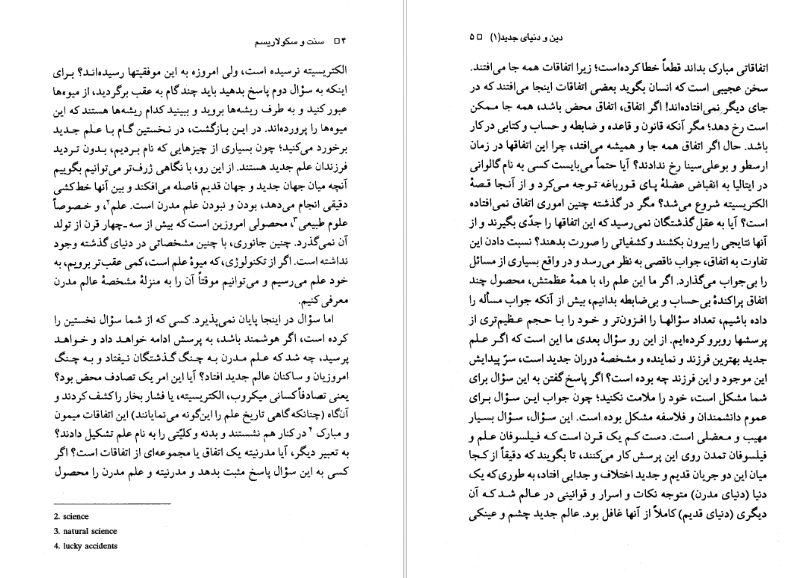 ۴ □ سنت و سکولاریسم
الکتریسیته نرسیده است، ولی امروزه به این موفقیتها رسیده‌اند؟ برای
اینکه به سؤال دوم پاسخ بدهید باید چند گام به عقب برگردید، از میوه‌ها
عبور کنید و به طرف ریشه‌ها بروید و ببینید کدام ریشه‌ها هستند که این
میوه‌ها را پرورده‌اند. در این بازگشت، در نخستین گام با علم جدید
برخورد می‌کنید؛ چون بسیاری از چیزهایی که نام بردیم، بدون تردید
فرزندان علم جدید هستند. از این رو، با نگاهی ژرف‌تر می‌توانیم بگوییم
آنچه میان جهان جدید و جهان قدیم فاصله می‌افکند و بین آنها خط‌کشی
دقیقی انجام می‌دهد، بودن و نبودن علم مدرن است. علم۲، و خصوصاً
علوم طبیعی۳، محصولی امروزین است که بیش از سه ـ چهار قرن از تولد
آن نمی‌گذرد. چنین جانوری، با چنین مشخصاتی در دنیای گذشته وجود
نداشته است. اگر از تکنولوژی، که میوهٔ علم است، کمی عقب‌تر برویم، به
خود علم می‌رسیم و می‌توانیم موقتاً آن را به منزلهٔ مشخصهٔ عالم مدرن
معرفی کنیم.
اما سؤال در اینجا پایان نمی‌پذیرد. کسی که از شما سؤال نخستین را
کرده است، اگر هوشمند باشد، به پرسش ادامه خواهد داد و خواهد
پرسید، چه شد که علم مدرن به چنگ گذشتگان نیفتاد و به چنگ
امروزیان و ساکنان عالم جدید افتاد؟ آیا این امر یک تصادف محض بود؟
یعنی تصادفاً کسانی میکروب، الکتریسیته، یا فشار بخار را کشف کردند و
آن‌گاه (چنانکه گاهی تاریخ علم را این‌گونه می‌نمایانند) این اتفاقات میمون
و مبارک۴ در کنار هم نشستند و بدنه و کلیّتی را به نام علم تشکیل دادند؟
به تعبیر دیگر، آیا مدرنیته یک اتفاق یا مجموعه‌ای از اتفاقات است؟ اگر
کسی به این سؤال پاسخ مثبت بدهد و مدرنیته و علم مدرن را محصول
2. science
3. natural science
4. lucky accidents
دین و دنیای جدید(۱) □ ۵
اتفاقاتی مبارک بداند قطعاً خطا کرده‌است؛ زیرا اتفاقات همه جا می‌افتند.
سخن عجیبی است که انسان بگوید بعضی اتفاقات اینجا می‌افتند که در
جای دیگر نمی‌افتاده‌اند! اگر اتفاق، اتفاق محض باشد، همه جا ممکن
است رخ دهد؛ مگر آنکه قانون و قاعده و ضابطه و حساب و کتابی در کار
باشد. حال اگر اتفاق همه جا و همیشه می‌افتد، چرا این اتفاقها در زمان
ارسطو و بوعلی‌سینا رخ ندادند؟ آیا حتماً می‌بایست کسی به نام گالوانی
در ایتالیا به انقباض عضلهٔ پای قورباغه توجه می‌کرد و از آنجا قصهٔ
الکتریسیته شروع می‌شد؟ مگر در گذشته چنین اموری اتفاق نمی‌افتاده
است؟ آیا به عقل گذشتگان نمی‌رسید که این اتفاقها را جدّی بگیرند و از
آنها نتایجی را بیرون بکشند و کشفیاتی را صورت بدهند؟ نسبت دادن این
تفاوت به اتفاق، جواب ناقصی به نظر می‌رسد و در واقع بسیاری از مسائل
را بی‌جواب می‌گذارد. اگر ما این علم را، با همهٔ عظمتش، محصول چند
اتفاق پراکندهٔ بی‌حساب و بی‌ضابطه بدانیم، بیش از آنکه جواب مسأله را
داده باشیم، تعداد سؤالها را افزون‌تر و خود را با حجم عظیم‌تری از
پرسشها روبرو کرده‌ایم. از این رو سؤال بعدی ما این است که اگر علم
جدید بهترین فرزند و نماینده و مشخصهٔ دوران جدید است، سرّ پیدایش
این موجود و این فرزند چه بوده است؟ اگر پاسخ گفتن به این سؤال برای
شما مشکل است، خود را ملامت نکنید؛ چون جواب این سؤال برای
عموم دانشمندان و فلاسفه مشکل بوده است. این سؤال، سؤال بسیار
مهیب و معضلی است. دست کم یک قرن است که فیلسوفان علم و
فیلسوفان تمدن روی این پرسش کار می‌کنند، تا بگویند که دقیقاً از کجا
میان این دو جریان قدیم و جدید اختلاف و جدایی افتاد، به طوری که یک
دنیا (دنیای مدرن) متوجه نکات و اسرار و قوانینی در عالم شد که آن
دیگری (دنیای قدیم) کاملاً از آنها غافل بود. عالم جدید چشم و عینکی